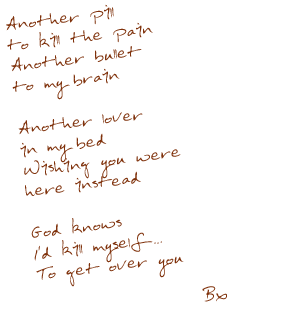 Another pill
to kill the pain
Another bullet
to my brain
Another lover
in my bed
Wishing you were
here instead
God knows
I'd kill myself...
To get over you
Bx